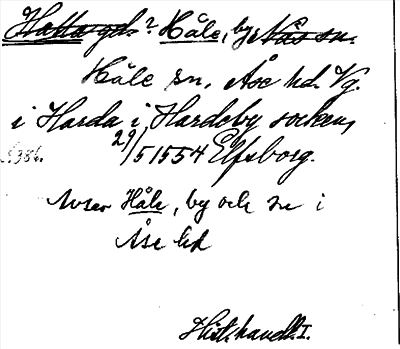 Hatta gd.? Håle, by, Ås sn.
Håle sn, Åse hd. Vg.
i Harda i Hardeby socken,
29/5 1554 Elfsborg.
Avser Håle, by och sn i
Åse hd
Hist. handl. I.